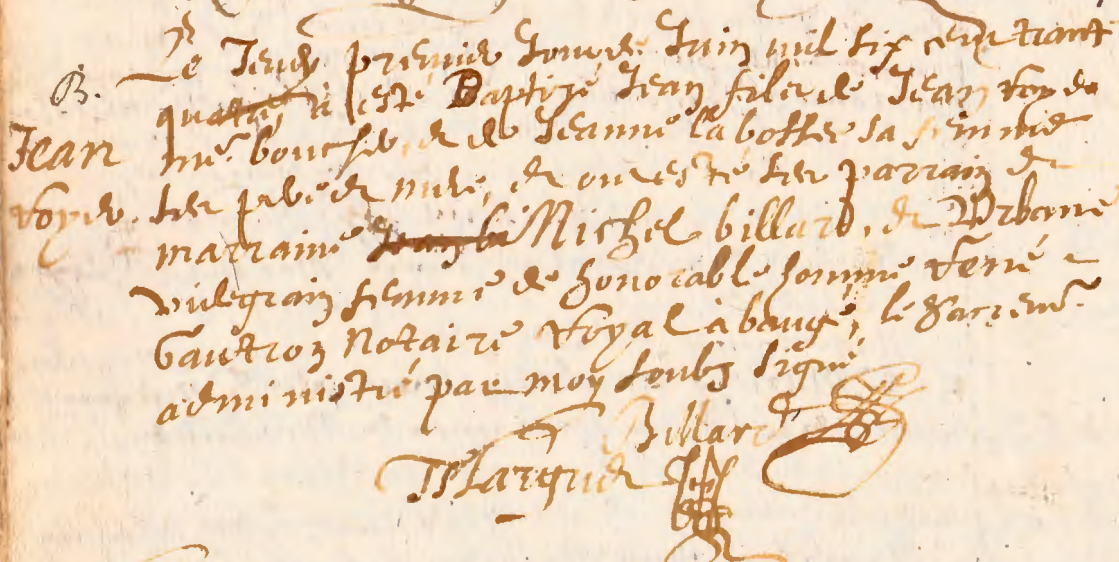 B.
Jean
Royer.
Le Jeudy premier Jour de Juin mil six cens trante
quatre, a esté Baptizé Jean filz de Jean Royer
me boucher, & de Jeanne sa femme
ses pere & mere, & ont esté ses parrain &
marraine Michel billard, & Urbanne
Videgrain femme de honorable homme René
Gautron Notaire Royal à baugé, le Sacremt
administré par moy soubz signé
Billard